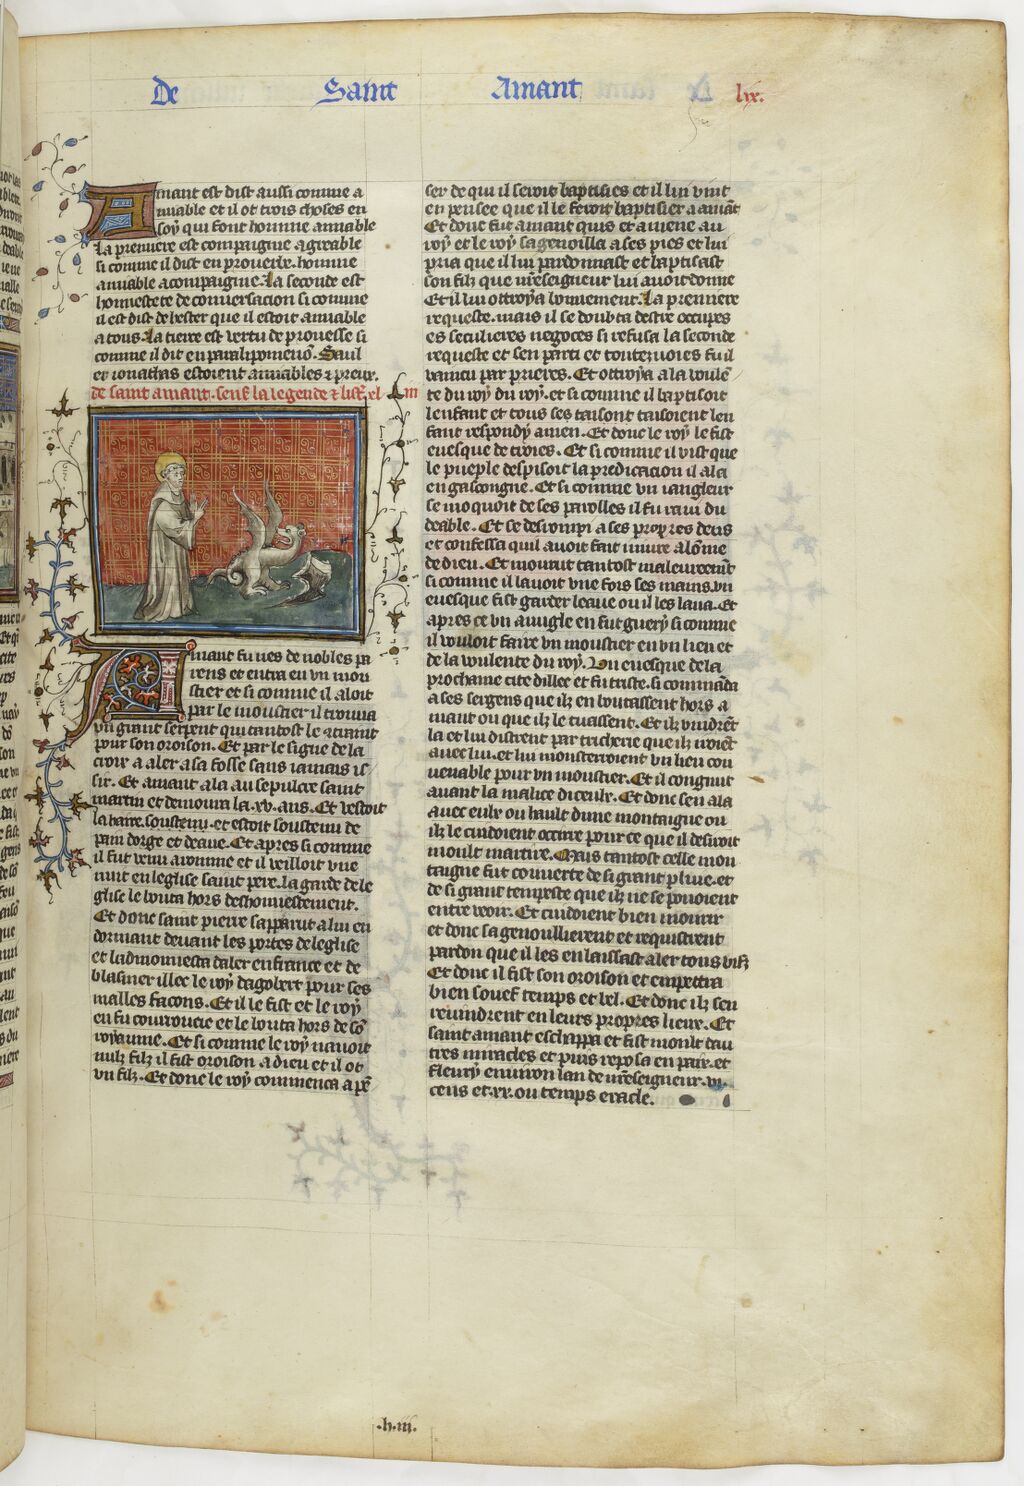 De Saint Amant lix.
Amant est dist aussi comme a
miable et il ot trois choses en
soy qui font homme amiable
La premiere est compaignie agreable
si comme il dist en prouerbe. homme
amiable a compaignie. La seconde est
honnestete de conuersacion si comme
il est dist de hester que il estoit amiable
a tous. La tierce est vertu de proesse si
comme il dit en paralipomenon. Saul
et ionathas estoient amiables et preux.
de saint amant. sens. la legende
Amant fu nes de nobles pa
rens et entra en vn mou
stier et si comme il aloit
par le moustier il trouua
vn grant serpent qui tantost
pour son oroison. Et par le signe de la
croix a aler a sa fosse sans iamais is
sir. Et amant ala au sepulcre saint
martin et demoura la .xv. ans. Et vestoit
la haire. soustenu. et estoit soustenu de
pain dorge et deaue. Et apres si comme
il fut venu a romme et il veilloit vne
nuit en leglise saint pere. la garde de le
glise le bouta hors deshonnestement.
Et donc saint pierre sapparut a lui en
dormant deuant les portes de leglise
et ladmonnesta daler en france et de
blasmer illec le roy dagobert pour ses
malles facons. Et il le fist et le roy
en fu courroucie et le bouta hors de sõ
royaume. Et si comme le roy nauoit
nulz filz il fist oroison a dieu et il ot
vn filz. Et donc le roy commenca a pẽ
ser de qui il seroit baptisies et il lui vint
en pensee que il le feroit baptisier a amãt
Et donc fut amant quis et amene au
roy et le roy sagenoilla a ses pies et lui
pria que il lui pardonnast et baptisast
son filz que nr̃eseigneur lui auoit donne
Et il lui ottroya bonnement. La premiere
requeste. mais il se doubta destre occupes
es seculieres negoces si refusa la seconde
requeste et sen parti et toutesuoies fu il
vaincu par prieres. Et ottroya a la voulẽ
te du roy du roy. et si comme il baptisoit
lenfant et tous se taisoient len
fant respondy amen. Et donc le roy le fist
euesque de troies. Et si comme il vist que
le pueple despisoit la predicacion il ala
en gascongne. Et si comme vn iangleur
se moquoit de ses parolles il fu raui du
deable. Et se desrompi a ses propres dens
et confessa quil auoit fait iniure a lõme
de dieu. Et mourut tantost maleureemẽt
si comme il lauoit vne fois ses mains. vn
euesque fist garder leaue ou il les laua. Et
apres ce vn auugle en fut guery si comme
il vouloit faire vn moustier en vn lieu et
de la voulente du roy. Vn euesque de la
prochaine cite dillec et fu triste. si commãda
a ses sergens que ilz en boutassent hors a
mant ou que ilz le tuassent. Et ilz vindrẽt
la et lui distrent par tricherie que ilz iroiẽt
auec lui. et lui monsterroient vn lieu cou
uenable pour vn moustier. Et il congnut
auant la malice diceulx. Et donc sen ala
auec eulx ou hault dune montaigne ou
ilz le cuidoient occire pour ce que il desiroit
moult martire. Mais tantost celle mon
taigne fut couuerte de si grant pluie. et
de si grant tempeste que ilz ne se pouoient
entre veoir. Et cuidoient bien mourir
et donc sagenoullierent et requistrent
pardon que il les en laissast aler tous vifz
Et donc il fist son oroison et empetra
bien souef temps et bel. Et donc ilz sen
reuindrent en leurs propres lieux. Et
saint amant eschappa et fist moult dau
tres miracles et puis reposa en paix. et
fleury enuiron lan de nr̃eseigneur. vi.
cens et .xx. ou temps eracle.
.h.iii.